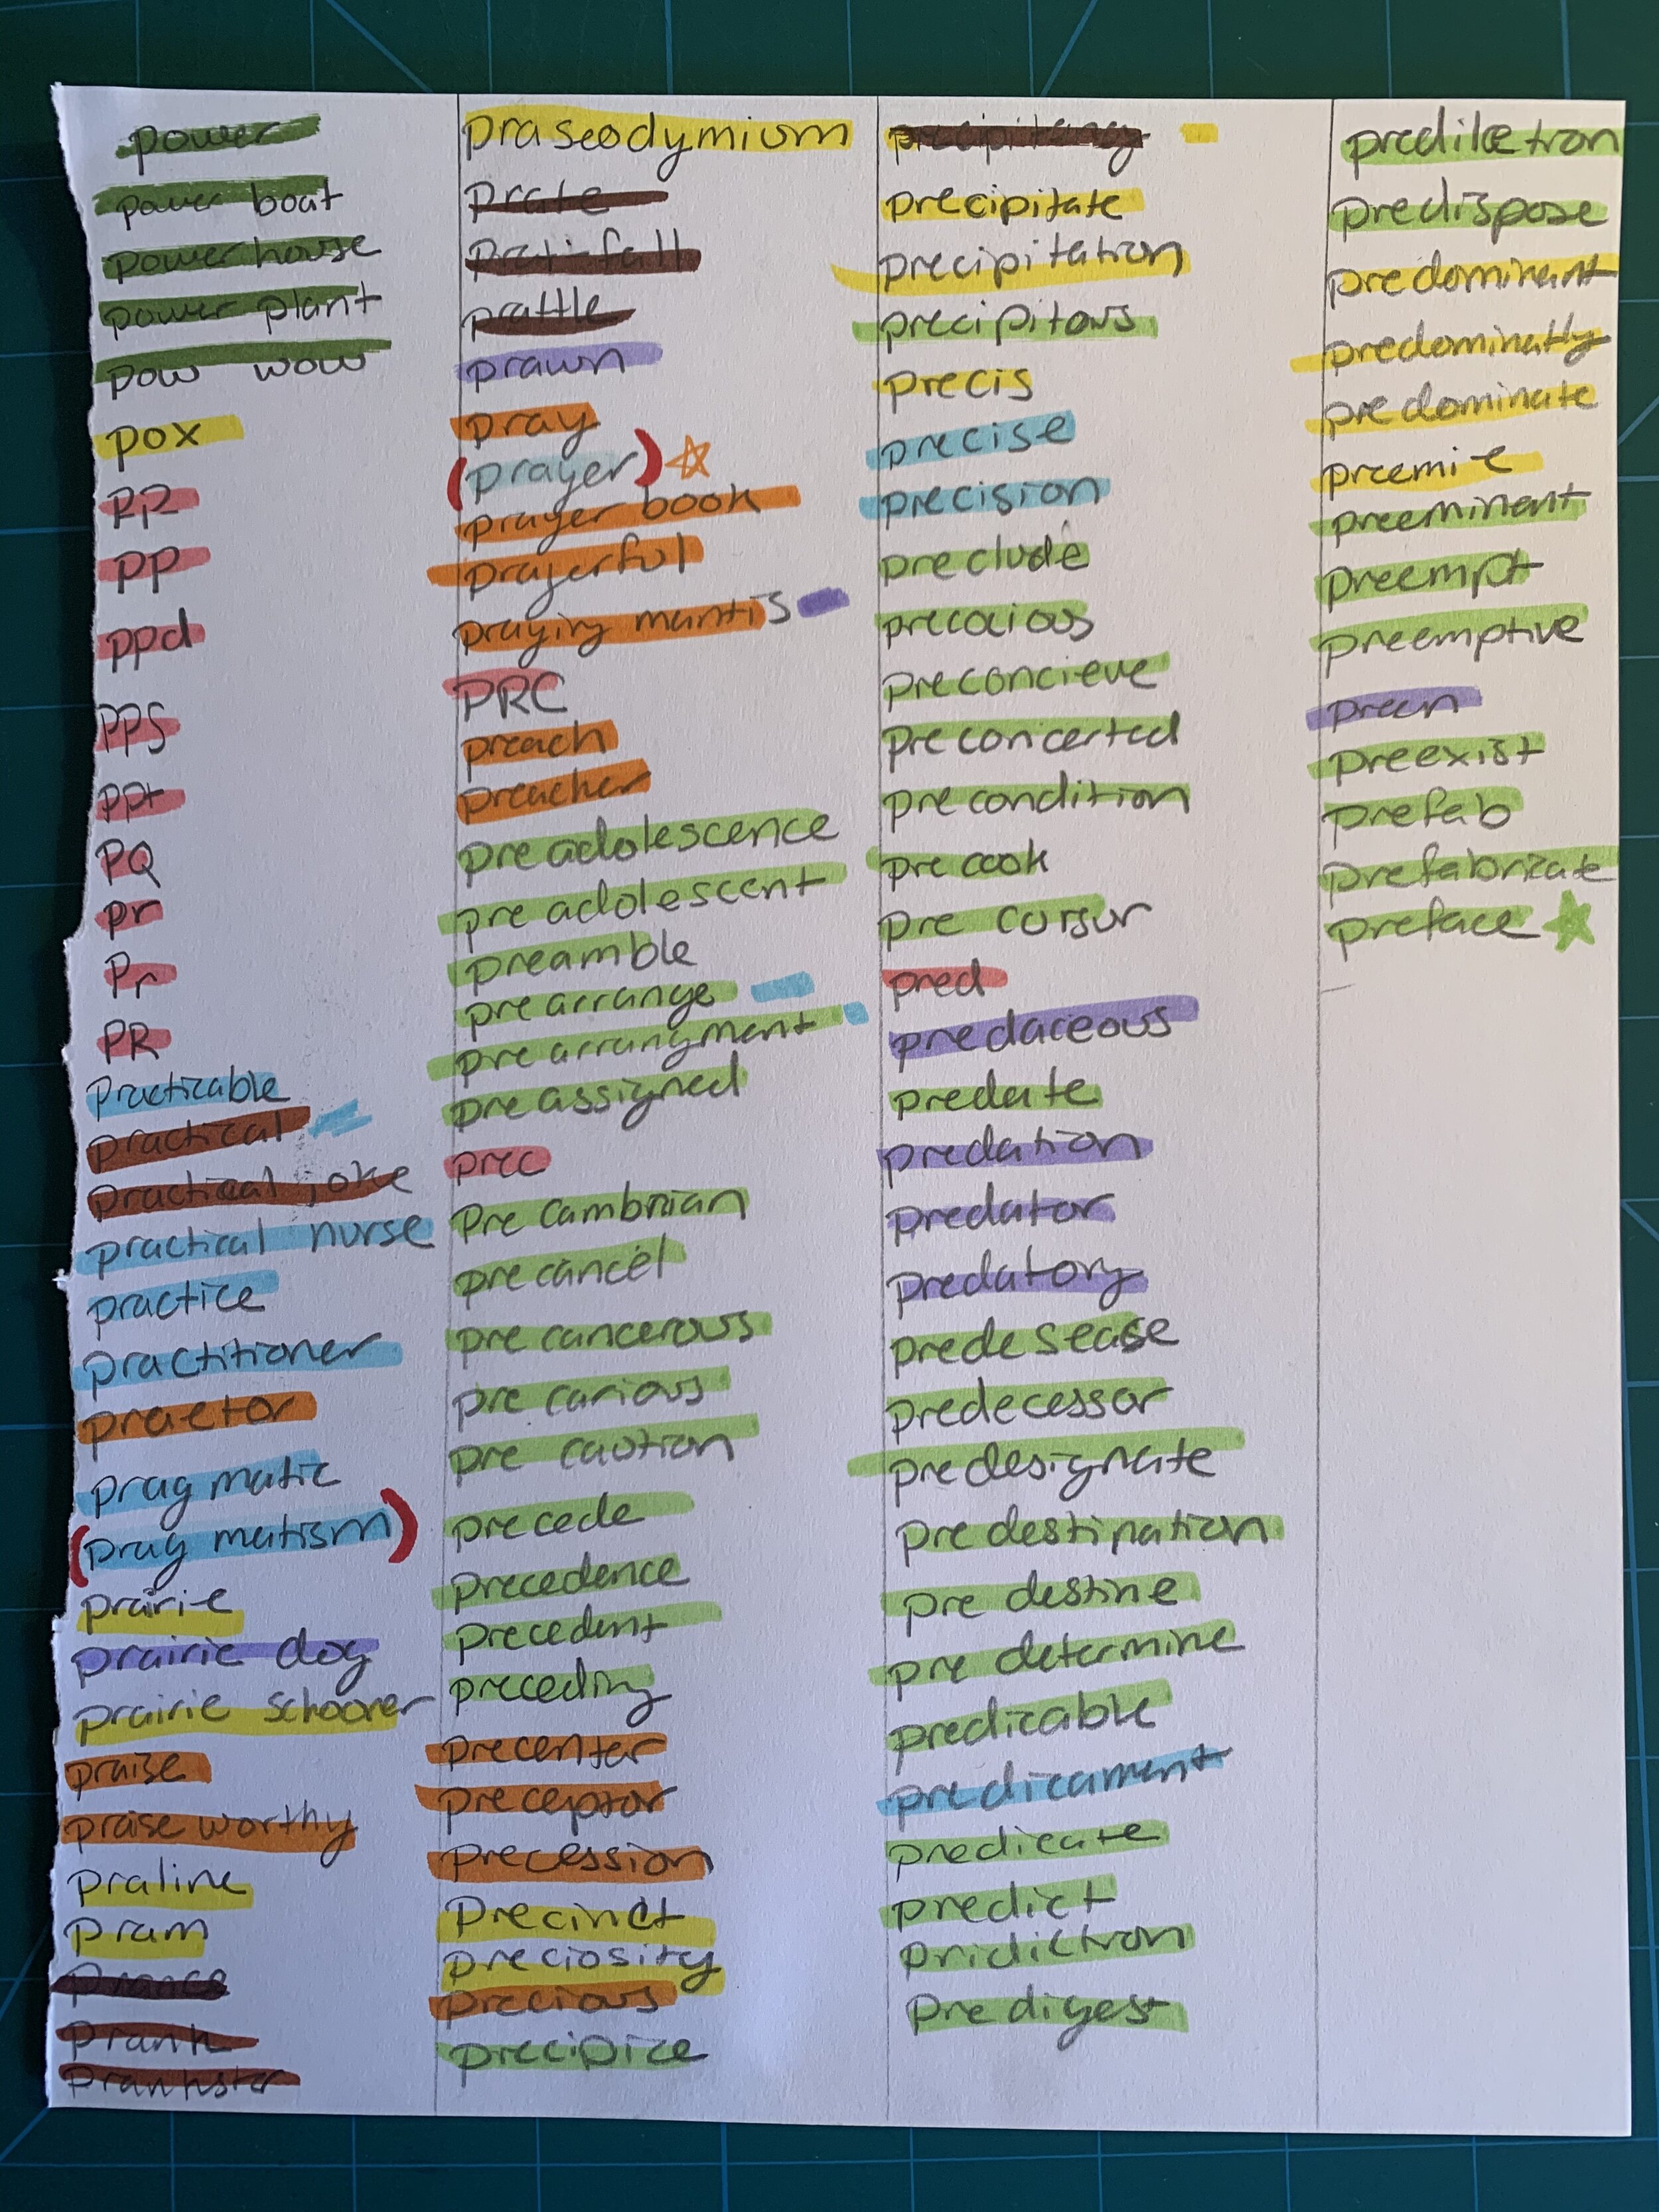 power
power boat
power house
power plant
pow wow
pox
PP
ppd
PPS
ppt
PQ
pr
Pr
PR
Practicable
practical
practical joke
practical nurse
practice
practitioner
praetor
pragmatic
(pragmatism)
prairie
prairie dog
prairie schooner
praise
praise worthy
praline
pram
prance
Prank
Prankster
praseodymium
Prate
Prat-fall
prattle
prawn
pray
(prayer)
prayer book
prayerful
praying mantis
PRC
preach
preacher
pre adolescence
pre adolescent
preamble
pre arrange
pre arrangment
pre assigned
prec
Pre cambrian
pre cancel
pre cancerous
pre carious
pre caution
precede
precedence
precedent
preceding
precenter
preceptor
precession
Precinct
preciosity
precious
precipice
precipitancy
precipitate
precipitation
precipitous
precis
precise
precision
preclude
precocious
preconcieve
pre concerted
pre condition
pre cook
pre cursur
pred
predaceous
predate
predation
predator
predatory
predesease
predecessor
predesignate
pre destination
pre destine
pre determine
predicable
predicament
predicate
predict
pridiction
Pre digest
predispose
predominant
predominatly
pre dominate
preemie
preeminent
preempt
preemptive
preen
preexist
prefab
prefabricate
preface